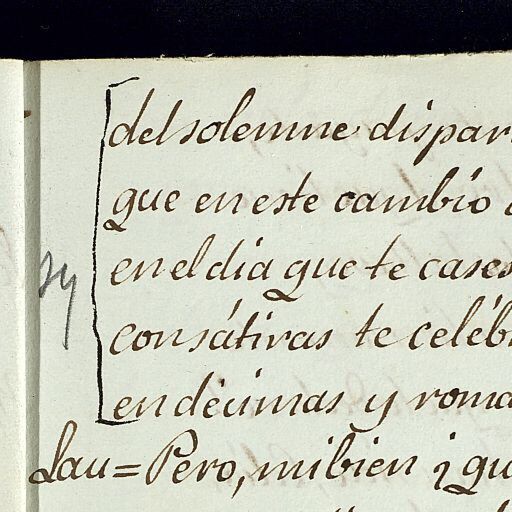 del solemne dispar
que en este cambio
en el dia que te cases
con sátiras te celéb
en décimas y roma
Lau = Pero, mi bien ¿ qu